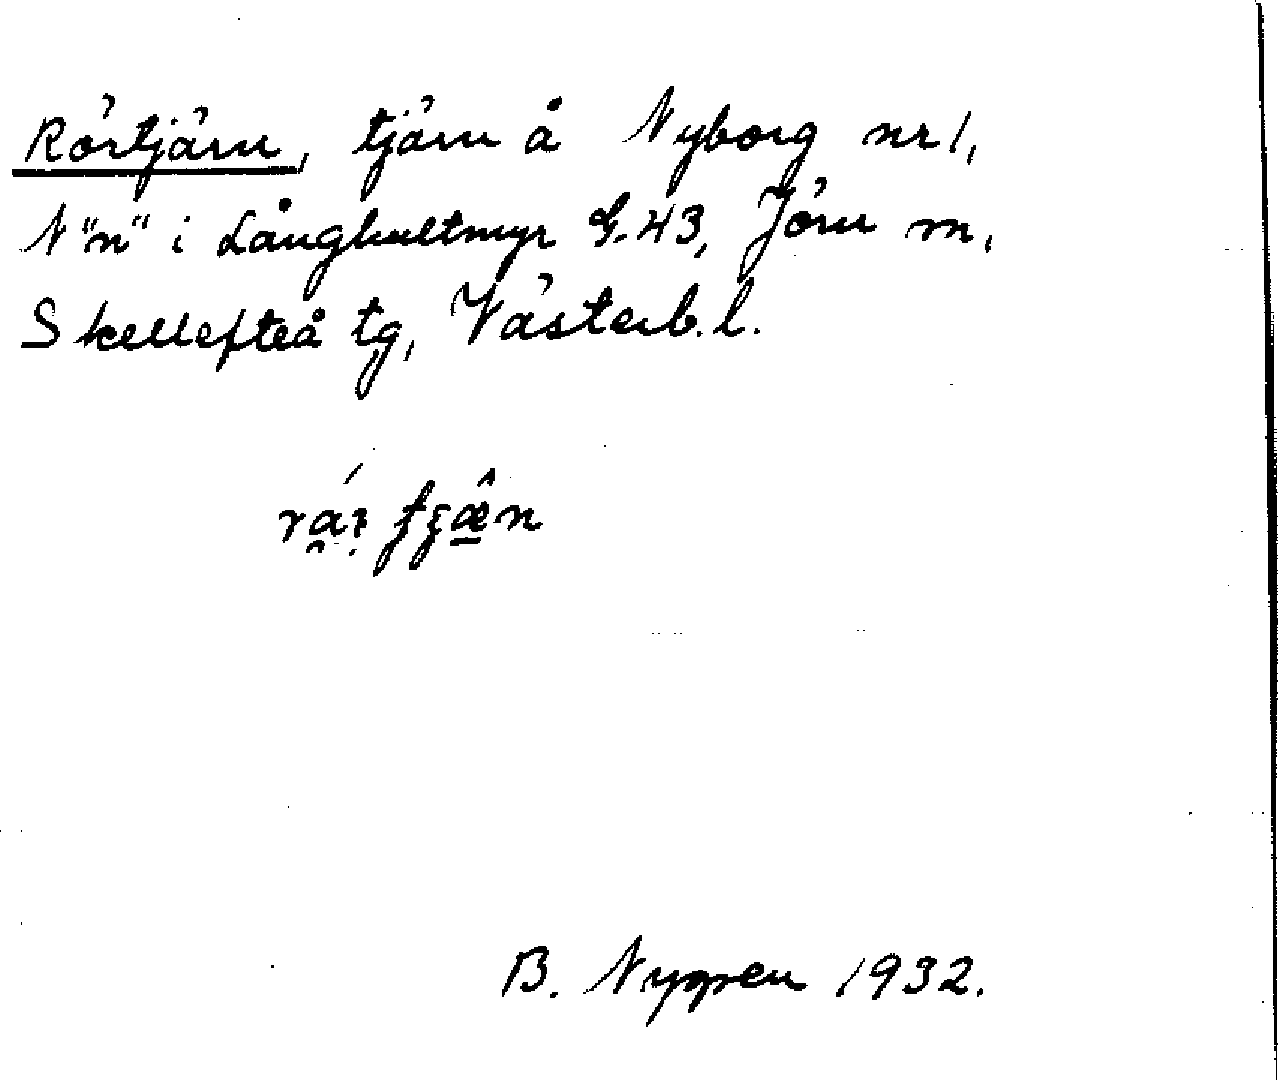 Rörtjärn, tjärn å Nyborg nr 1,
N "n" i Långhultmyr G.43, Jörn m,
Skellefteå tg, Västerb. l.
B. Nygren 1932.